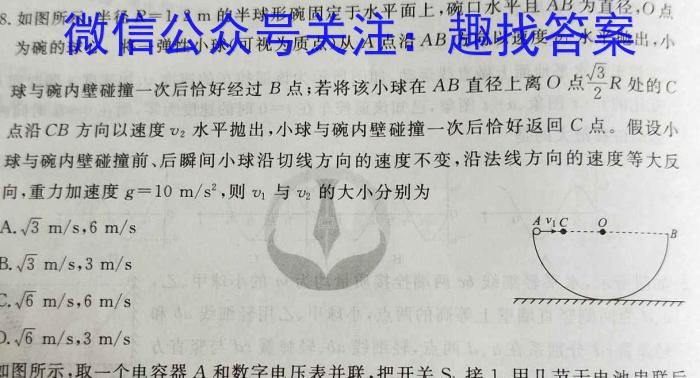 8.如图所示,半径R=1.2 m的半球形碗固定于水平面上,碗口水平且AB为直径,O点
微信公众号关注:趣找答案
为碗的球心。将一弹性小球(可视为质点)从A点沿AB方向以速度 水平抛出,小
球与碗内壁碰撞一次后恰好经过B点;若将该小球在AB直径上离O点√3/2 R处的C
点沿CB方向以速度v₂水平抛出,小球与碗内壁碰撞一次后恰好返回C点。假设小
球与碗内壁碰撞前、后瞬间小球沿切线方向的速度不变,沿法线方向的速度等大反
向,重力加速度g=10 m/s²,则v₁与v₂的大小分别为
A.√3 m/s,6 m/s
B.√3 m/s,3 m/s
C.√6 m/s,6 m/s
D.√6 m/s,3 m/s
A v₁ C O B
如图所示,取一个电容器A和数字电压表并联,把开关S 接1,用几节干电池串联后